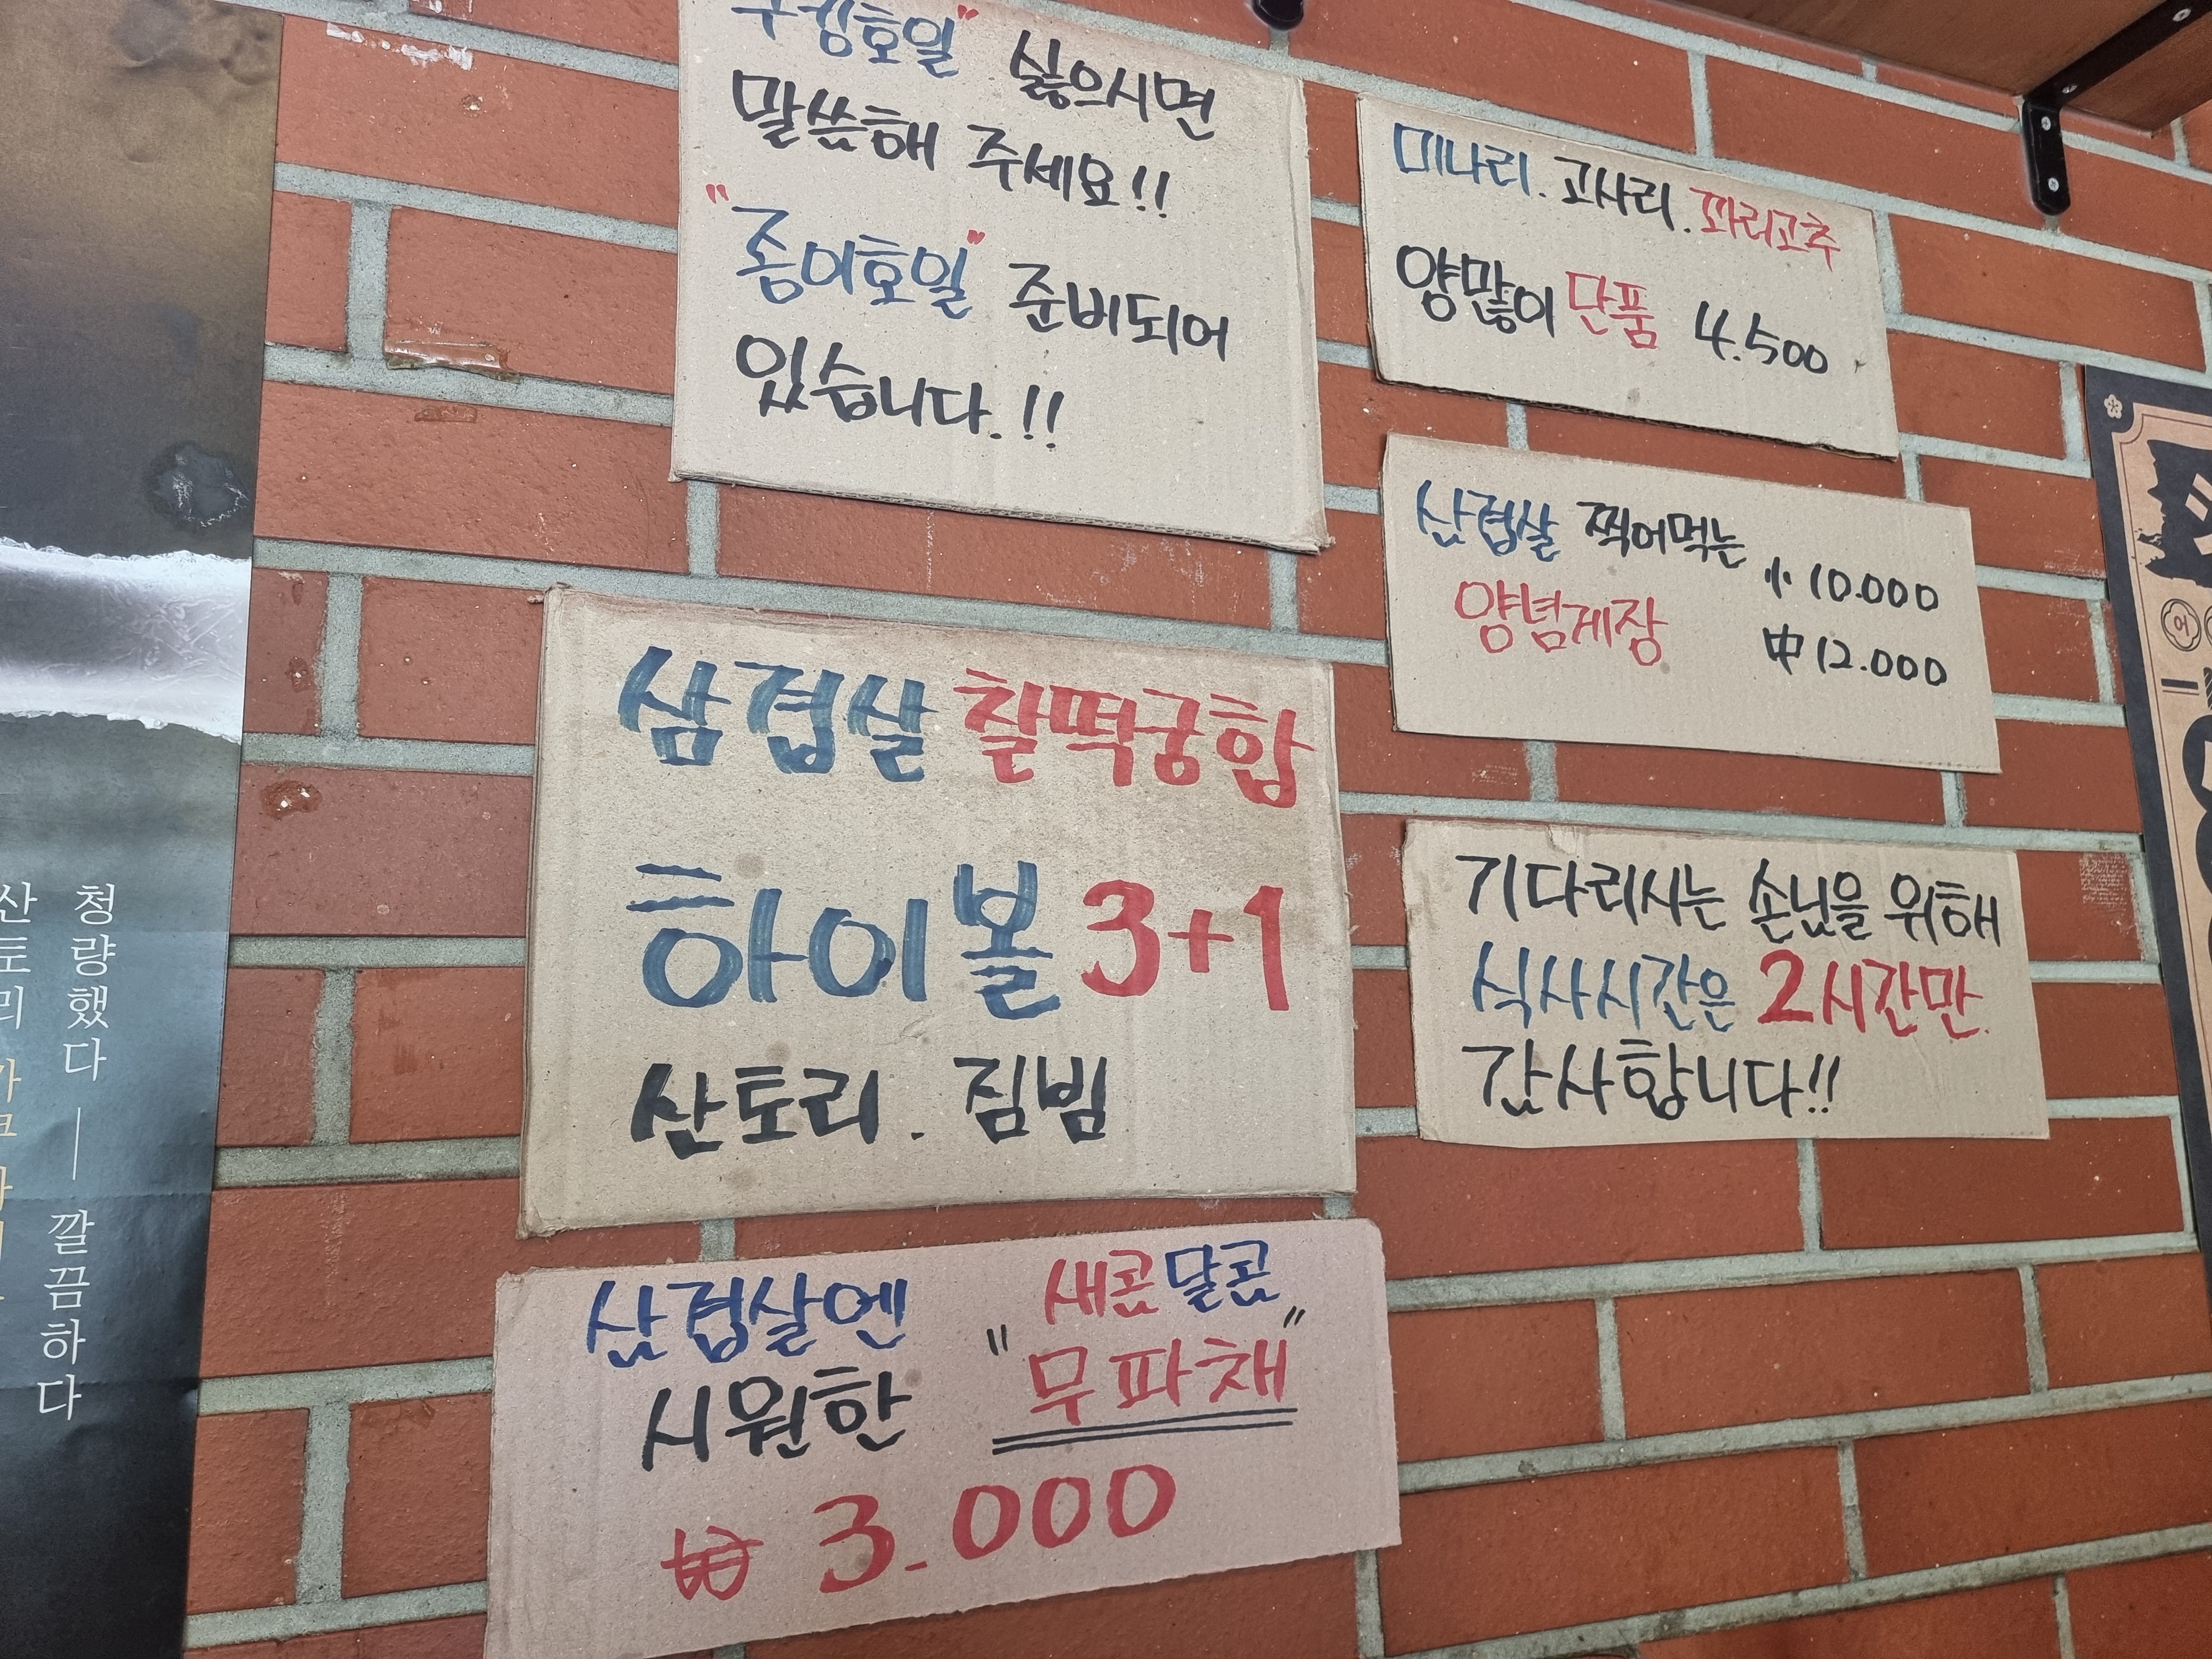 쿠킹호일" 싫으시면
말씀해 주세요!!
"종이호일" 준비되어
있습니다.!!
미나리. 고사리. 꽈리고추
양많이 단품 4.500
삼겹살 찍어먹는 小 10.000
양념게장 中 12.000
삼겹살 찰떡궁합
하이볼 3+1
산토리. 짐빔
기다리시는 손님을 위해
식사시간은 2시간만
감사합니다!!
삼겹살엔 새콤달콤
시원한 "무파채"
₩ 3.000
청량했다 — 깔끔하다
산토리